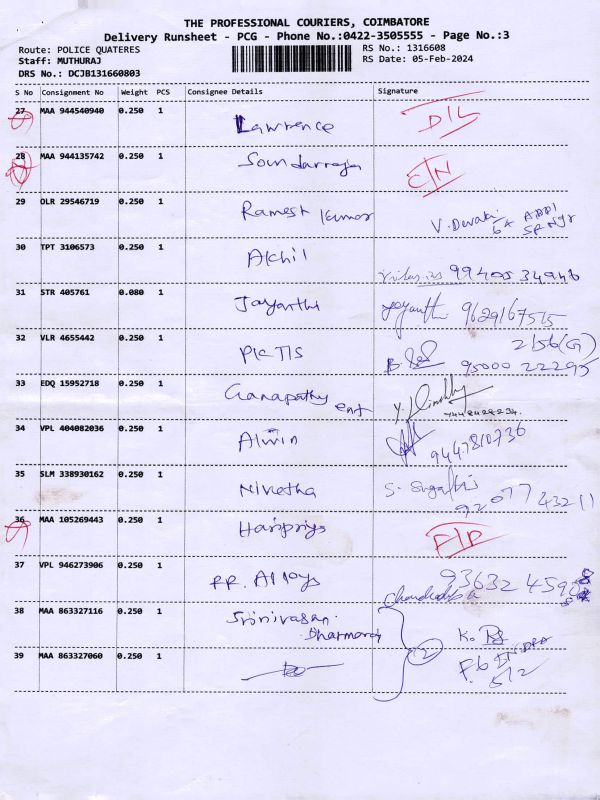 THE PROFESSIONAL COURIERS, COIMBATORE
Delivery Runsheet - PCG - Phone No.:0422-3505555 - Page No.:3
Route: POLICE QUATERES RS No.: 1316608
Staff: MUTHURAJ RS Date: 05-Feb-2024
DRS No.: DCJB131660803
S No Consignment No Weight PCS Consignee Details Signature
27 MAA 944540940 0.250 1 Lawrence D/L
28 MAA 944135742 0.250 1 Soundarraja C/N
29 OLR 29546719 0.250 1 Ramesh kumar V. Devaki
30 TPT 3106573 0.250 1 Akhil 99405 34946
31 STR 405761 0.080 1 Jayanthi Jayanthi 9629167515
32 VLR 4655442 0.250 1 PKTIS 2156(G)
95000 22295
33 EDQ 15952718 0.250 1 Ganapathy ent
34 VPL 404082036 0.250 1 Alwin 9447810736
35 SLM 338930162 0.250 1 Nivetha 92077 43211
36 MAA 105269443 0.250 1 Haripriya
37 VPL 946273906 0.250 1 PR. Alloys
38 MAA 863327116 0.250 1 Srinivasan
Dharmaraj 2
39 MAA 863327060 0.250 1 512